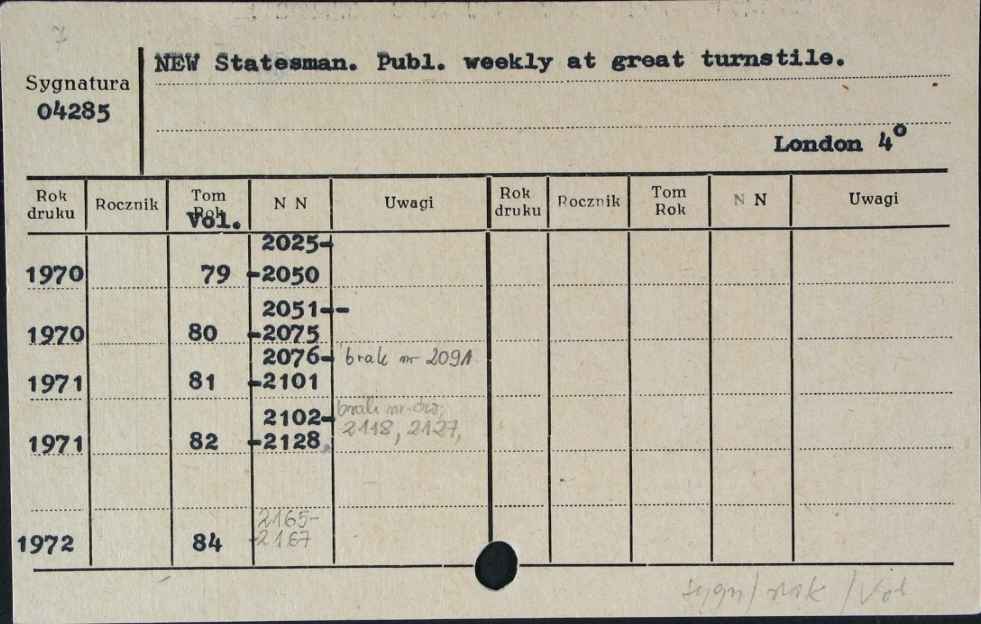 7
NEW Statesman. Publ. weekly at great turnstile.
Sygnatura
04285
London 4°
Rok druku Rocznik Tom Rok Vol. N N Uwagi Rok druku Rocznik Tom Rok N N Uwagi
2025-
1970 79 -2050
2051--
1970 80 -2075
2076- brak nr 2091
1971 81 -2101
2102- brak nr-ów,
1971 82 -2128, 2118, 2127,
2165-
1972 84 -2167
sygn/ rok /Vol